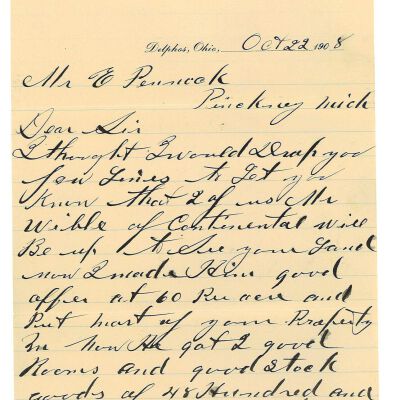 Delphos, Ohio, Oct 22 1908
Mr E Pennock
Pinckney Mich
Dear Sir
I thought I would Drap you
few Lines to Let you
Know that 2 of us Mr
Wible of Continental will
Be up to See your Land
now I made Him good
offer at 60 Per acre and
Put most of your Praperty
In now He got 2 good
Rooms and good Stock
goods of 48 Hundred and